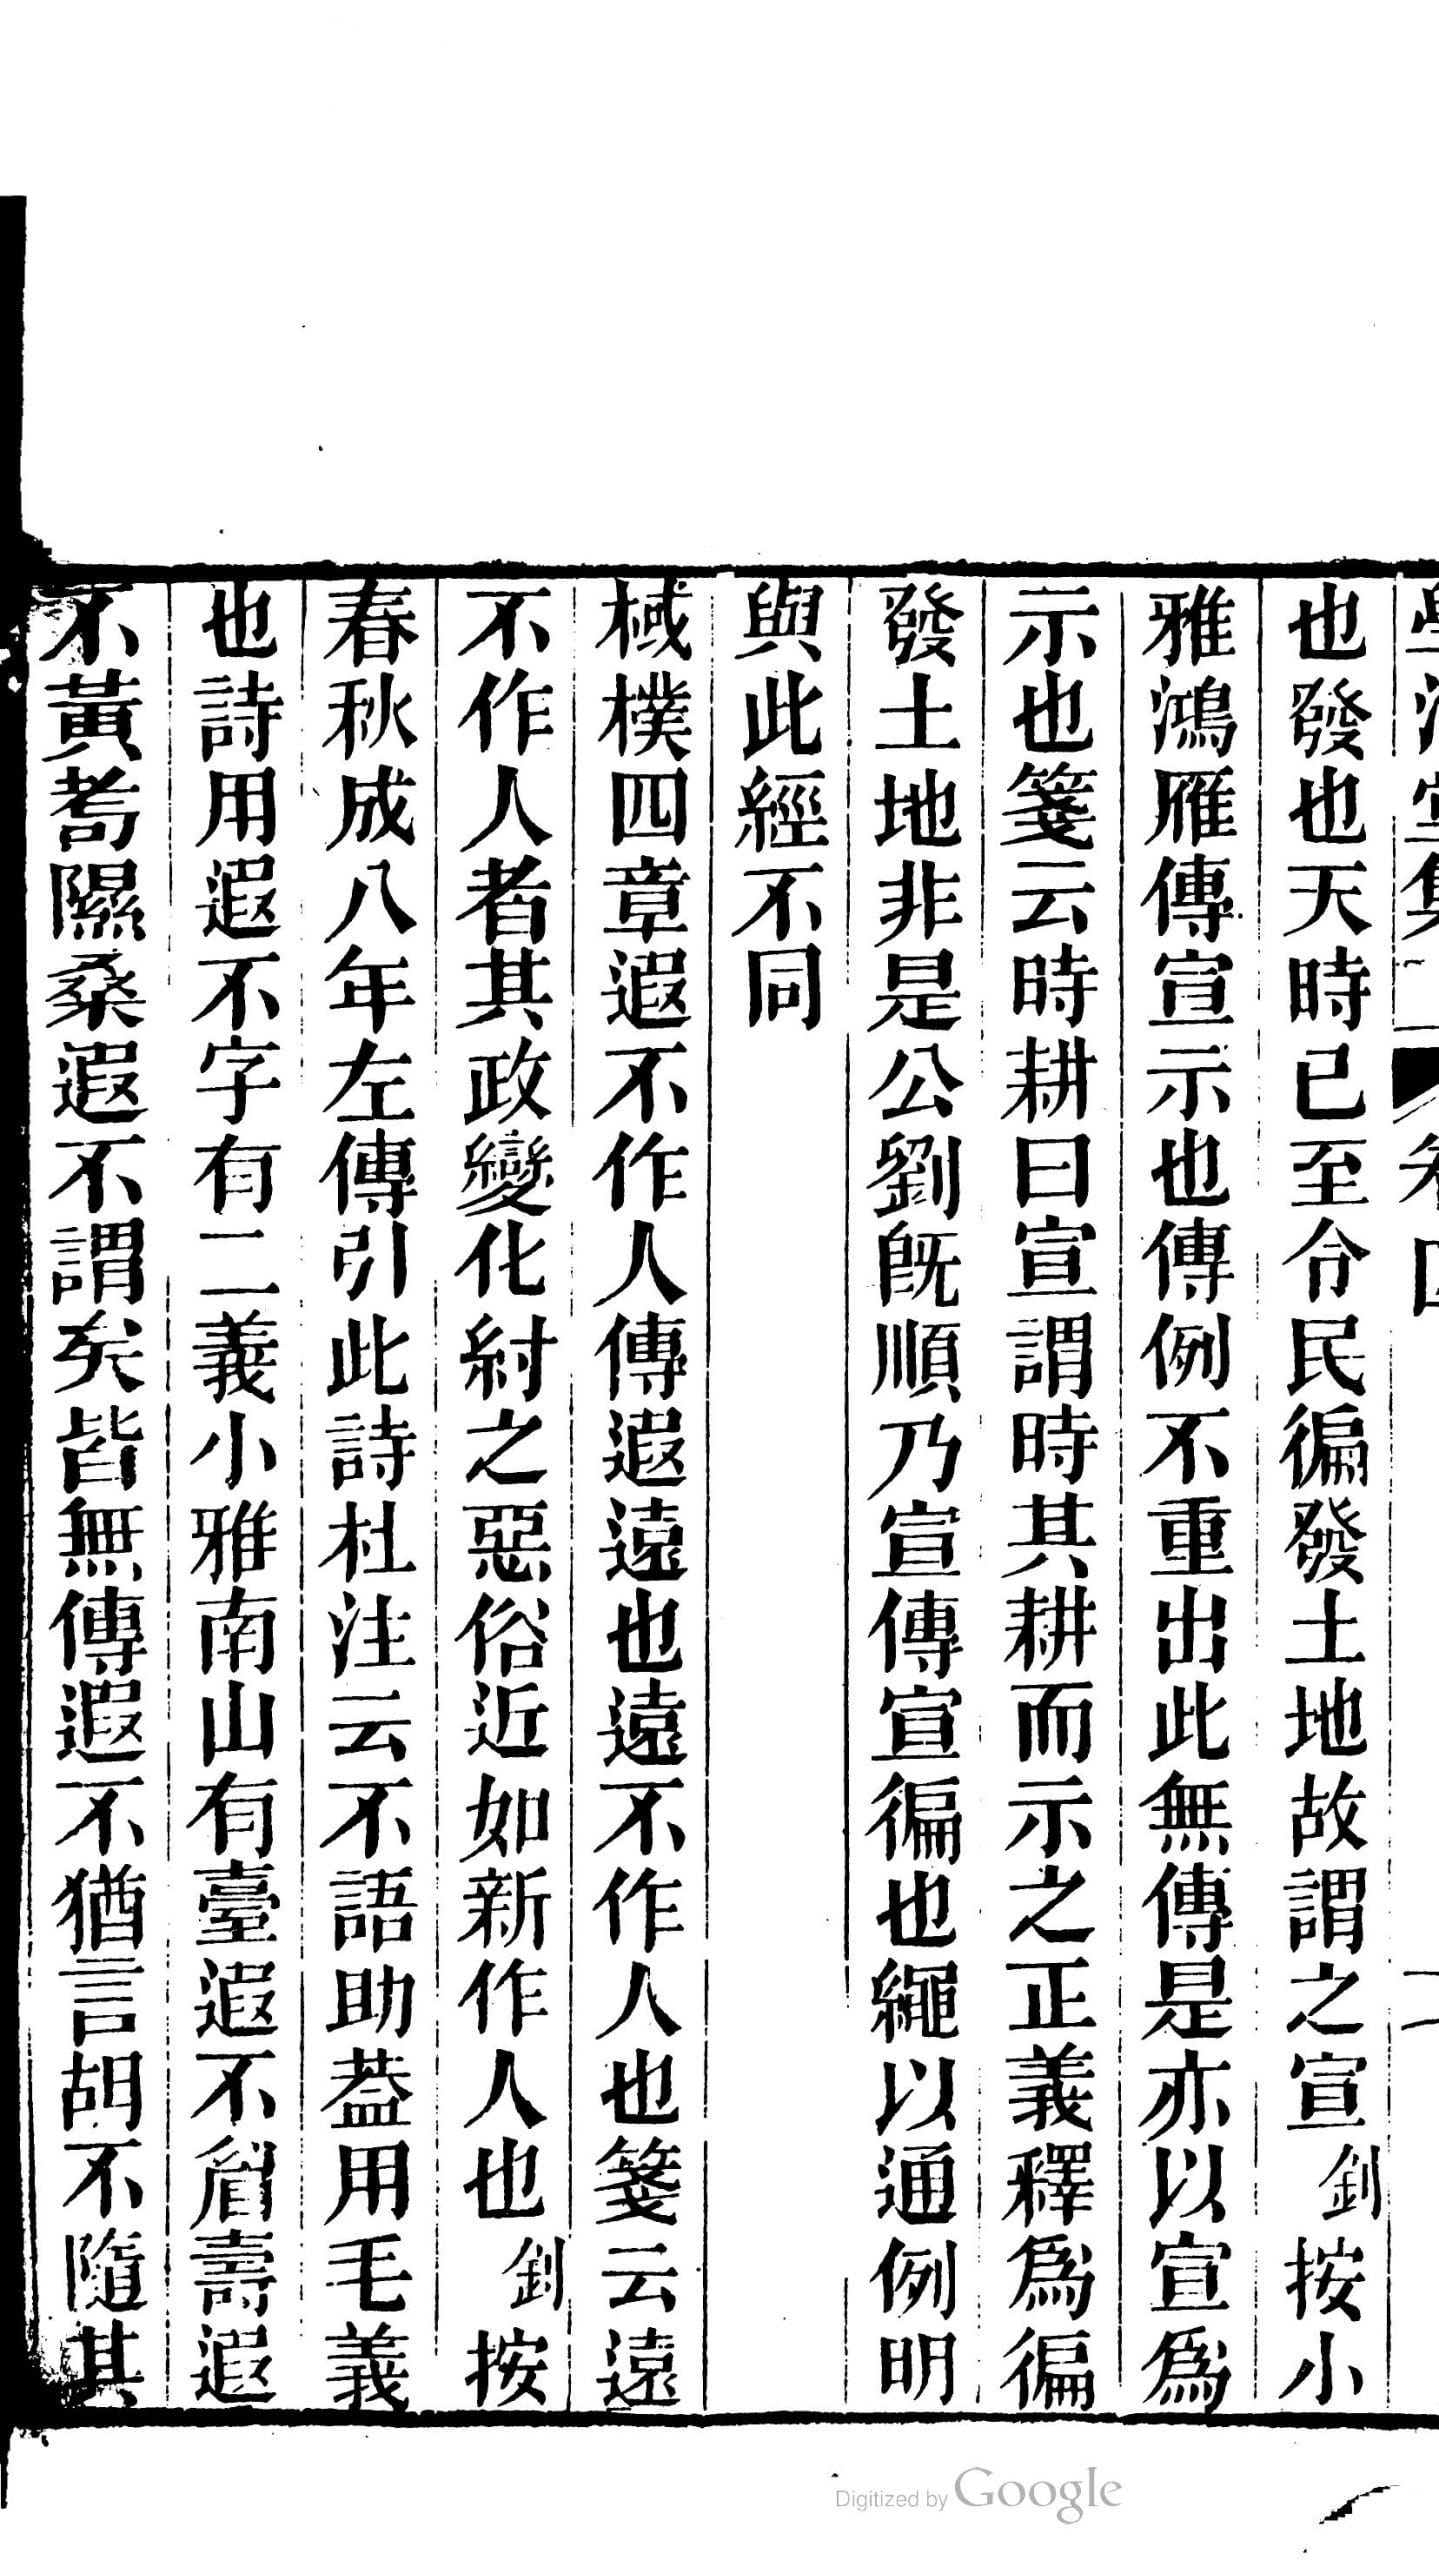 學海堂集 卷四 十一
也發也天時已至令民徧發土地故謂之宣釗按小
雅鴻雁傳宣示也傳例不重出此無傳是亦以宣爲
示也箋云時耕曰宣謂時其耕而示之正義釋爲徧
發土地非是公劉旣順乃宣傳宣徧也繩以通例明
與此經不同
棫樸四章遐不作人傳遐遠也遠不作人也箋云遠
不作人者其政變化紂之惡俗近如新作人也釗按
春秋成八年左傳引此詩杜注云不語助葢用毛義
也詩用遐不字有二義小雅南山有臺遐不眉壽遐
不黃耇隰桑遐不謂矣皆無傳遐不猶言胡不隨其
Digitized by Google